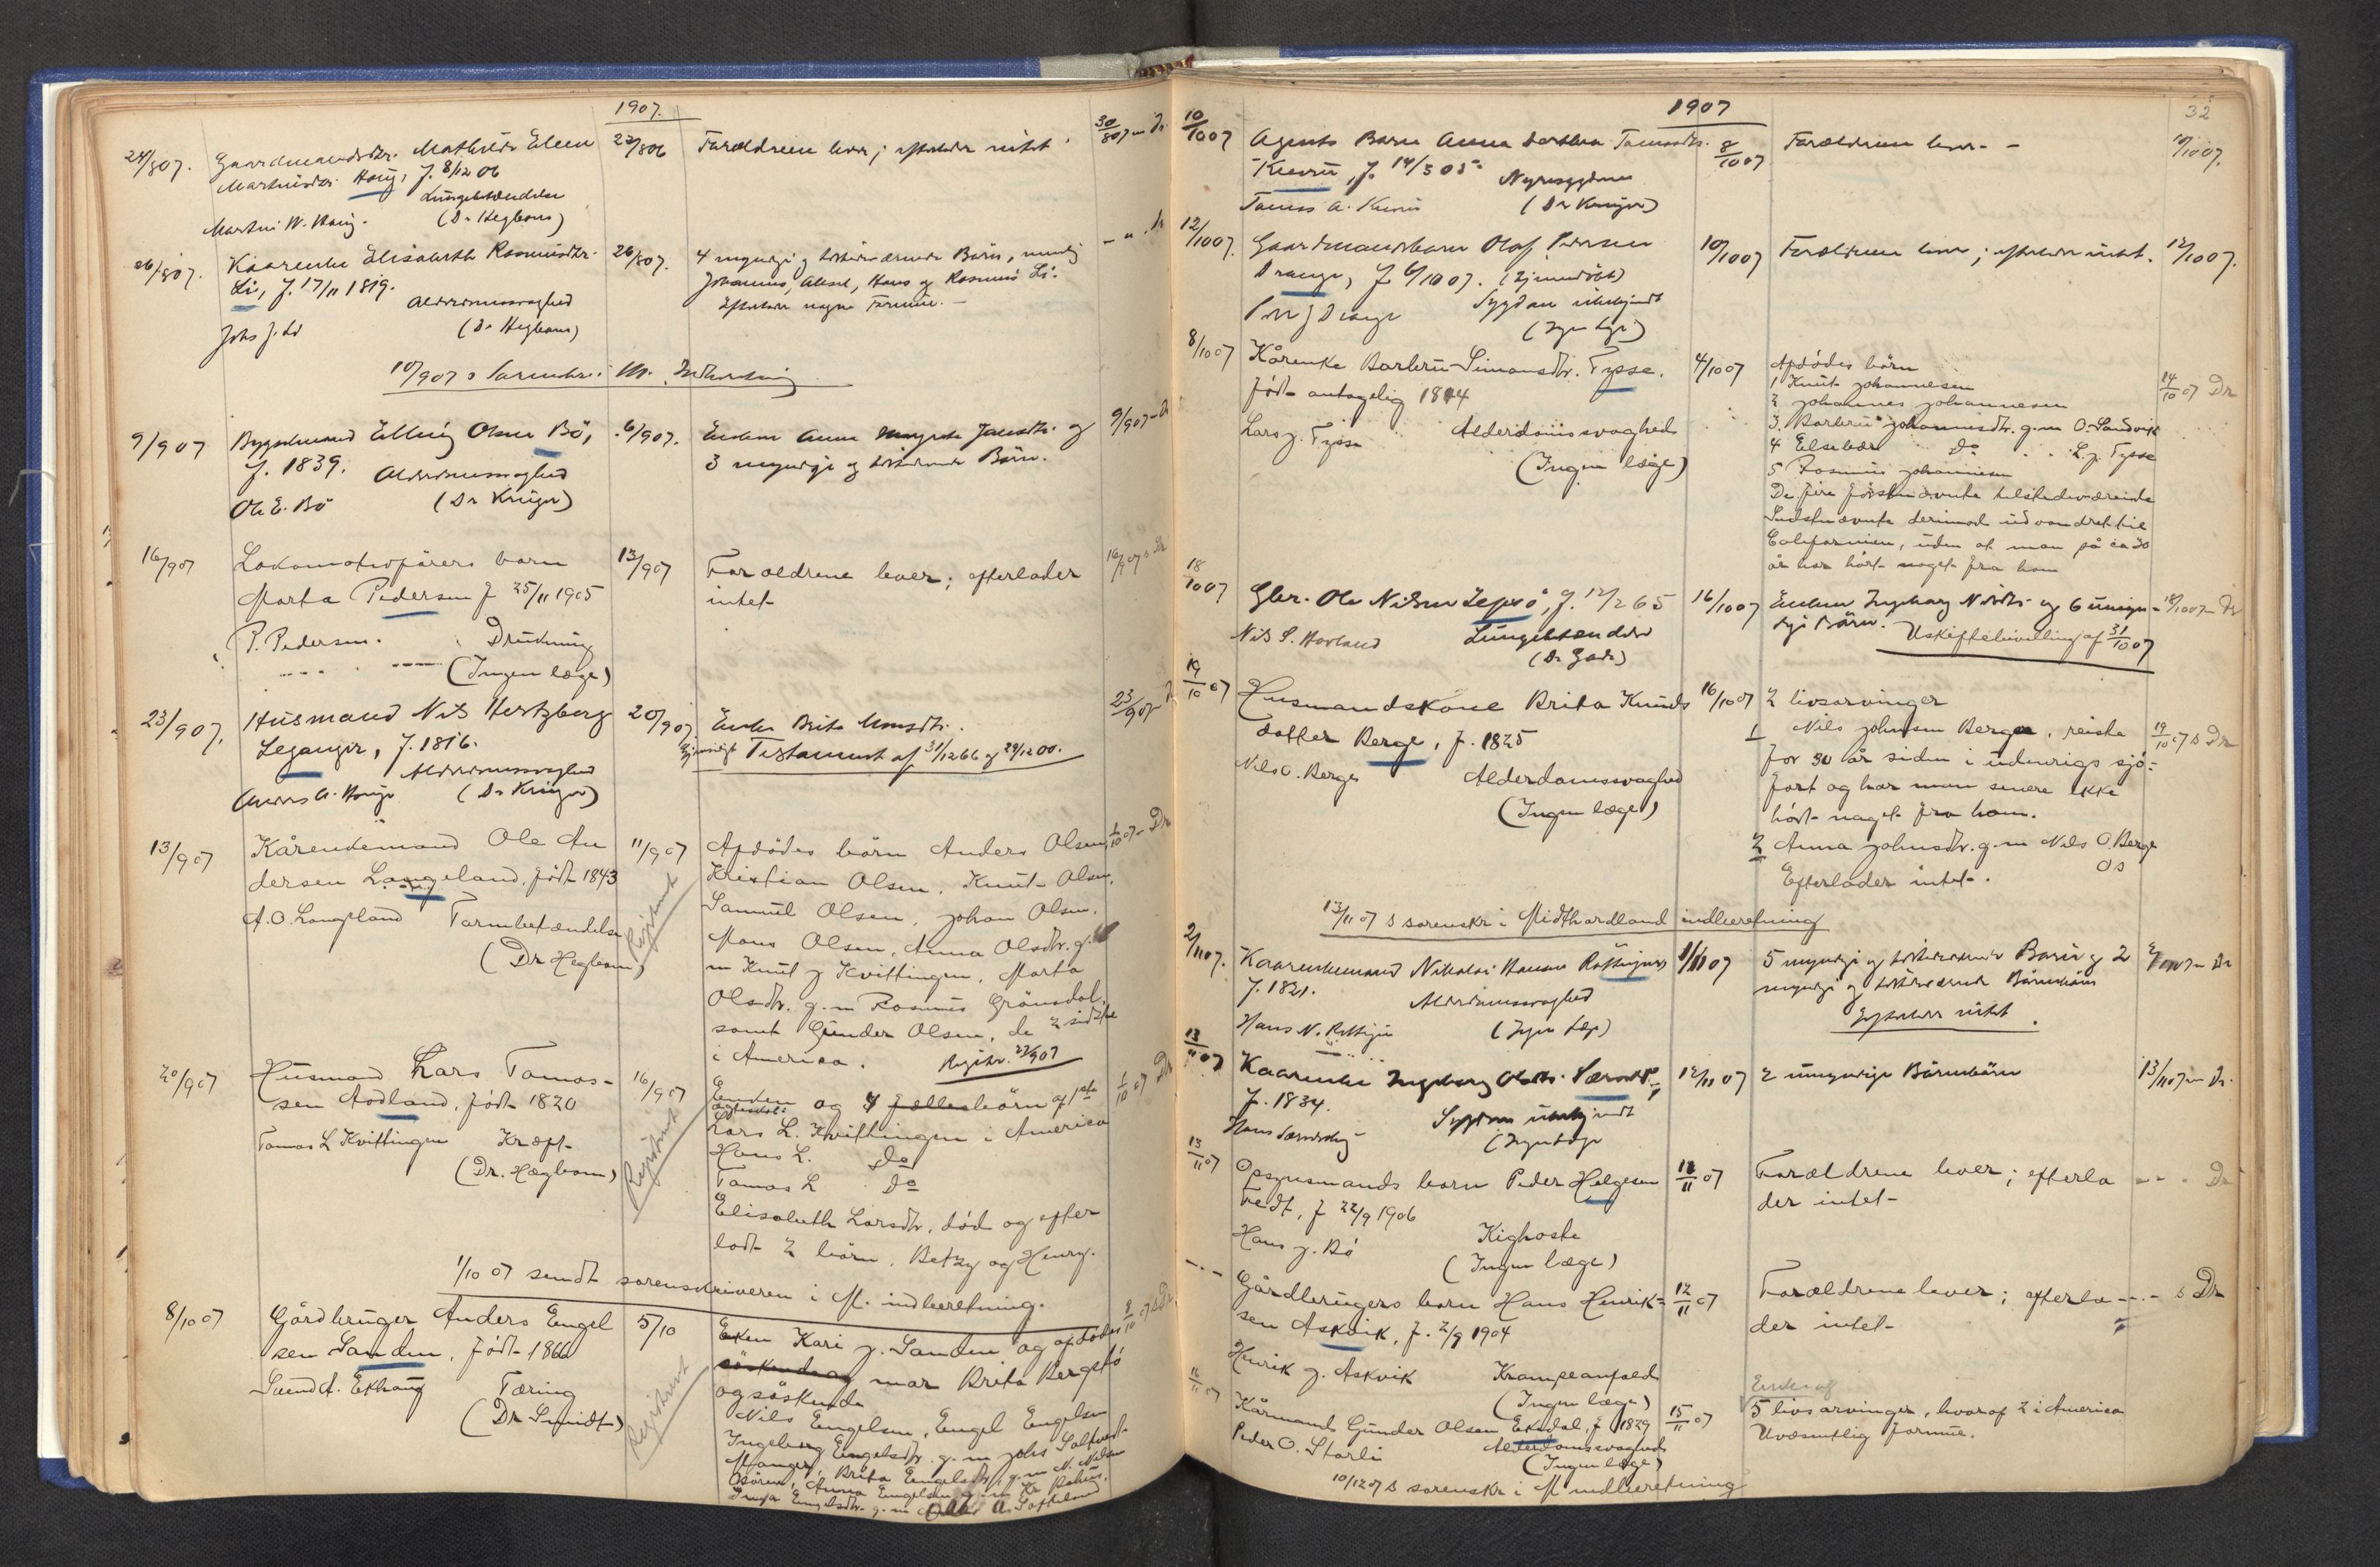 1907.
24/807. Gaardmandsdtr. Mathilde Elene 23/806 Forældrene lever; efterlader intet. 30/807
Martinsdtr. Haug, f. 8/12 06
Lungebetændelse
Martin N. Haug. (Dr Hegbom)
26/807. Kaarenke Elisabeth Rasmusdtr. 26/807. 4 myndige og tilstedeværende Børn, nemlig
Li, f. 17/11 1819. Johannes, Aksel, Hans og Rasmus Li.
Alderdomssvaghed Efterlader nogen Formue.
Johs J. Li (Dr Hegbom)
10/907 s Sorenskr. i M. Indberetning
9/907 Bygselmand Elling Olsen Bö, 6/907. Enken Anna Jansdtr. og 9/907
f. 1839. Alderdomssvaghed 3 myndige og Börn.
Ole E. Bö (Dr Krüger)
16/907 Lokomotivförers barn 13/907 Foraeldrene lever; efterlader
Marta Pedersen f 25/11 1905 intet
P. Pedersen. Drukning
(Ingen læge)
23/907. Husmand Nils Hertzberg 20/907 Enke Brita Monsdtr. 23/907
Leganger, f. 1816. Gjensidigt Testament af 31/12 66 og 29/12 00.
Alderdomssvaghed
A. Hauge (Dr Krüger)
13/907 Kårendemand Ole An 11/907 Afdödes börn Anders Olsen, 1/10 07 Dr
dersen Langeland, född 1843 Kristian Olsen, Knut Olsen,
A. O. Langeland Tarmbetændelse Registrert Samuel Olsen, Johan Olsen,
(Dr Hegbom) Mons Olsen, Anna Olsdtr. g.
m Knut J Kvittingen, Marta
Olsdtr. g. m Rasmus Grönsdal,
samt Gunder Olsen, de 2 sidste
i America. Registr. 27/907
20/907 Husmand Lars Tomas- 16/907 Enken og 4 fællesbörn af 1ste 1/10 07 Dr
sen Aadland, född 1820 Lars L. Kvittingen i America
Tomas L Kvittingen Kræft Registrert Hans L. Do
(Dr. Hægbom) Tomas L Do
Elisabeth Larsdtr, död og efter
lodt 2 börn, Betzy og Henry.
1/10 07 sendt sorenskriveren i M. indberetning.
8/10 07 Gårdbruger Anders Engel 5/10 Enken Kari J. Sanden og afdödes 8/10 07 s Dr
sen Sanden, född 1866 söskend og mor Brita Bergstö
Svend A. Ekhaug Tæring Registrert og söskende
(Dr Smidt) Nils Engelsen, Engel Engelsen
Ingeborg Engelsdtr. g. m Johs Saltvedt
Manger, Brita Engelsdtr, g. m N. Nilsen
Osören, Anna Engelsen g. m
Engelsdtr. g. m A. Softeland
1907 32
10/1007 Agents Barn Anna Dorthea Tomasdtr. 8/10 07 Forældrene lever 10/1007.
f. 14/5 05. Nyresygdom
Tomas A. (Dr Krüger)
12/1007. Gaardmandsbarn Olaf Persen 10/1007 Forældrene lever; efterlader intet. 12/1007.
Drange, f. 6/1007. (Hjemmedöbt)
Per J Drange Sygdom ubekjendt
(Ingen læge)
8/1007 Kårenke Barbru Simonsdtr. Tysse, 4/1007 Afdödes börn 14/10 07 Dr
född antagelig 1814 1 Knut Johannesen
2 Johannes Johannesen
Lars J. Tysse Alderdomssvaghed 3, Barbru Johannesdtr. g. m O. Sandvik
(Ingen læge) 4 Elsebær Do L. J. Tysse
5 Rasmus Johannesen
De fire förstnævnte tilstedeværende
Sidstnævnte derimod udvandret til
Californien, uden at man på ca 30
år har hört noget fra ham
18/1007 Gbr. Ole Nilsen Lepsö, f. 12/2 65 16/1007 Enken Ingeborg Nilsdtr. og 6 umyn- 18/1007 Dr
dige Börn. Uskiftebevilling af 31/10 07
Nils S. Havland Lungebetændelse
(Dr Gade)
19/10 07 Husmandskone Brita Knuds 16/1007 2 livsarvinger
datter Berge, f. 1825 1 Nils Johnsen Berge, reiste 19/10 07 s Dr
Nils O. Berge Alderdomssvaghed for 30 år siden i udenrigs sjö-
(Ingen læge) fart og har man senere ikke
hört noget fra ham.
2 Anna Johnsdtr. g. m Nils O. Berge
Efterlader intet. Os
13/11 07 s sorenskr i Midthordland indberetning
2/1107. Kaarenkemand Nikolai Hansen Röttingen 1/11 07 5 myndige og tilstedeværende Barn og 2
f. 1821. myndige og tilstedeværende Börnebörn
Alderdomssvaghed Efterlader intet
Hans N. Röttingen (Ingen læge)
13/11 07 Kaarenke Ingeborg Olsdtr. Særvold 12/11 07 2 umyndige Börnebörn 13/1107 Dr.
f. 1834. Sygdom ubekjendt
Hans (Ingen læge
13/11 07 Opsynsmands barn Peder Helgesen 12/11 07 Foraeldrene lever; efterla Dr
Tvedt, f 22/9 1906 der intet
Hans J. Bö Kighoste
(Ingen læge)
Gårdbrugers barn Hans Henrik= 12/11 07 Foraeldrene lever; efterla s Dr
sen Askvik, f. 2/9 1904 der intet
Henrik J. Askvik Krampeanfald
(Ingen læge)
Enke og
16/11 07 Kårmand Gunder Olsen Eksdal, f 1829 15/11 07 5 livsarvinger, hvoraf 2 i America
Peder O. Storli Alderdomssvaghed Uvæsentlig formue.
(Ingen læge)
10/12 07 s sorenskr i M indberetning